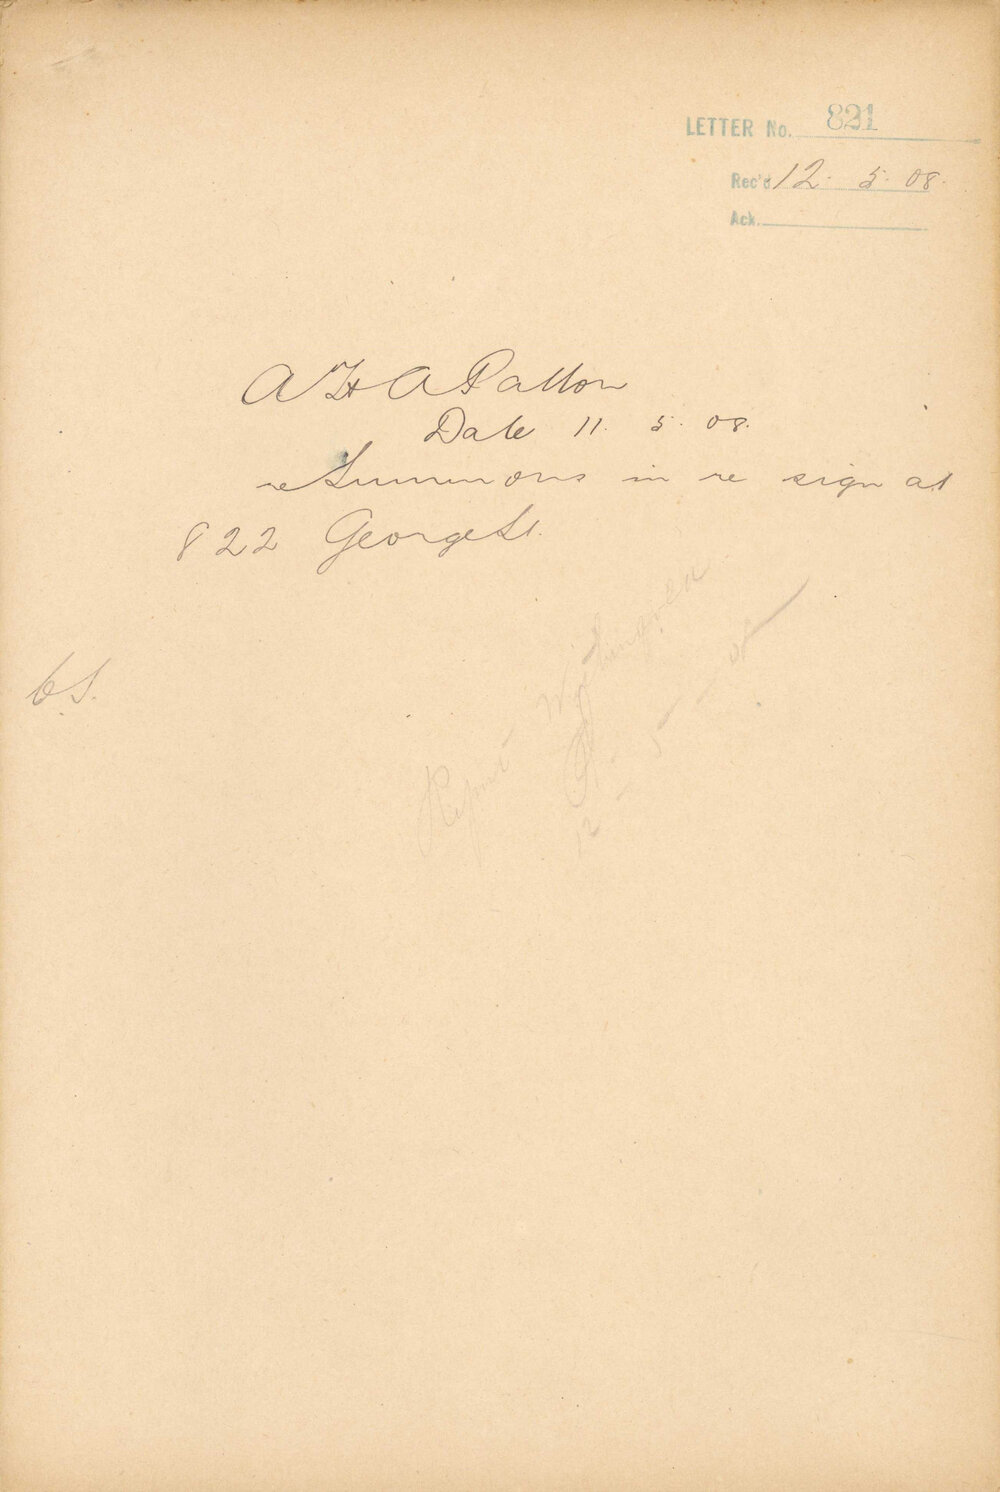 LETTER No. 821
Rec'd 12. 5. 08.
Ack.
A H A Patton
Date 11. 5. 08.
re Summons in re sign at
822 George St.
C.S.
Report
12 - 5 - 08